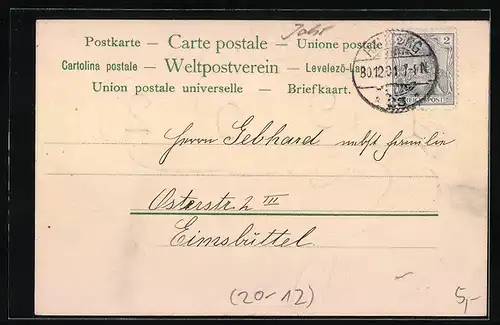 Jahr
Postkarte — Carte postale — Unione postale
Cartolina postale — Weltpostverein — Levelező-La
Union postale universelle — Briefkaart.
2 2
30.12.01. 7-8 N
REICHSPOST
Herrn Gebhard nebst Familie
Osterstr. 2 III
Eimsbüttel.
(20-12)
5,-